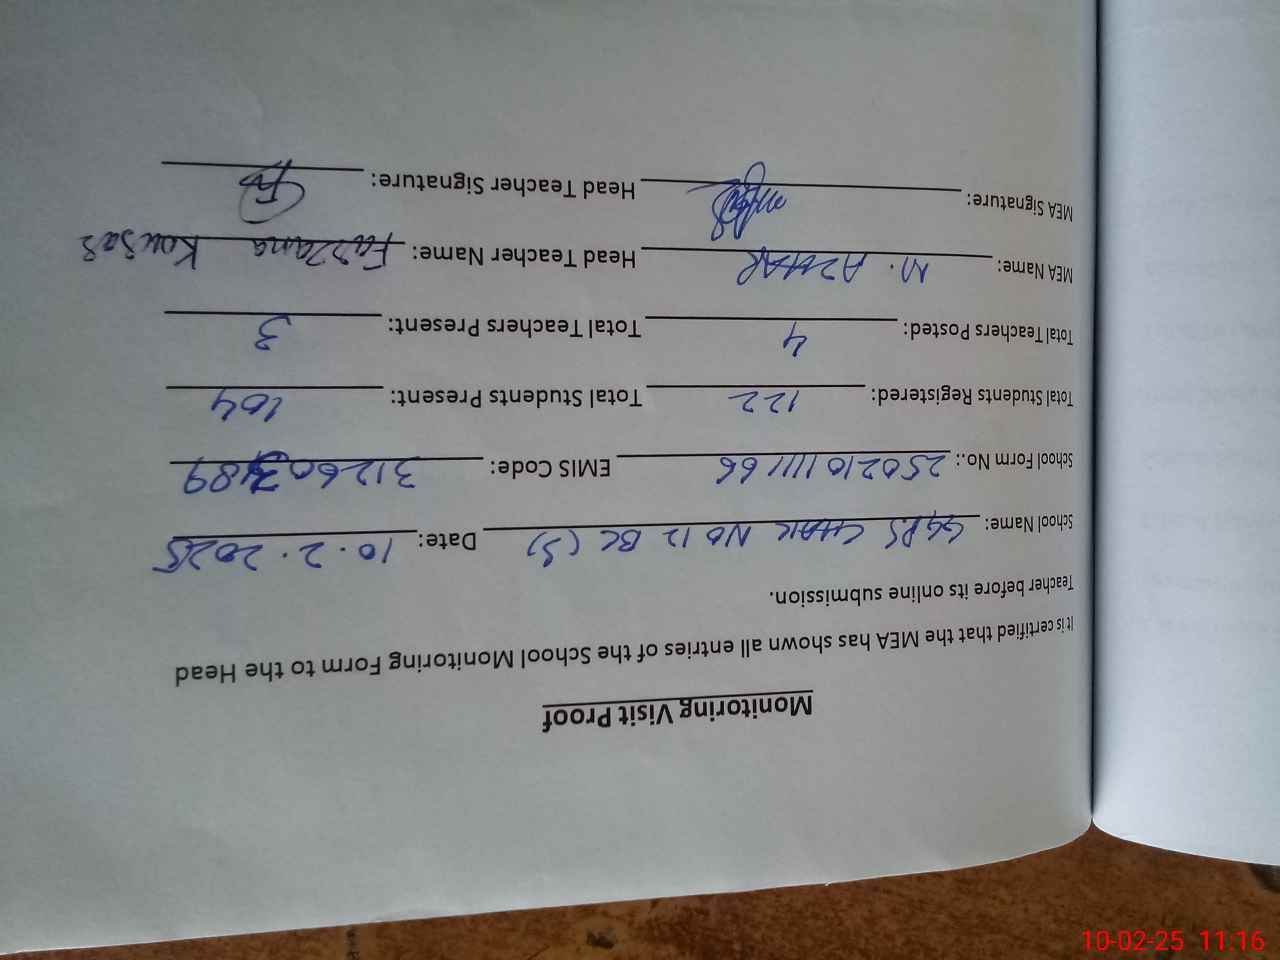 Monitoring Visit Proof
It is certified that the MEA has shown all entries of the School Monitoring Form to the Head
Teacher before its online submission.
School Name: GGPS CHAK NO 12 BC (S) Date: 10.2.2025
School Form No.: 25021011166 EMIS Code: 31260
Total Students Registered: 122 Total Students Present: 104
Total Teachers Posted: 4 Total Teachers Present: 3
MEA Name: M. AZHAR Head Teacher Name: Farzana Kousar
MEA Signature: Head Teacher Signature:
10-02-25 11:16